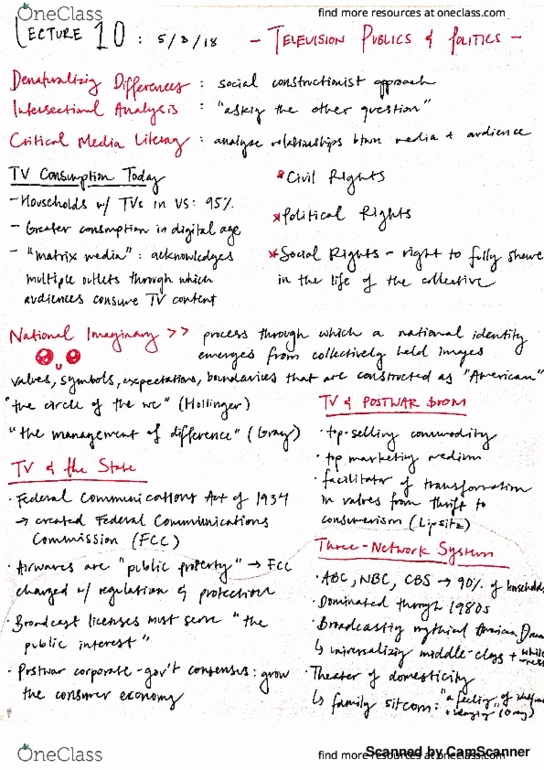 OneClass
find more resources at oneclass.com
LECTURE 10 : 5/2/18 - TELEVISION PUBLICS & POLITICS -
Denaturalizing Differences : social constructionist approach
Intersectional Analysis : "asking the other question"
Critical Media Literacy : analyze relationships btwn media + audience
TV Consumption Today
- Households w/ TVs in US: 95%
- Greater consumption in digital age
- "matrix media" : acknowledges
multiple outlets through which
audiences consume TV content
* Civil Rights
* Political Rights
* Social Rights - right to fully share
in the life of the collective
National Imaginary >> process through which a national identity
emerges from collectively held images
values, symbols, expectations, boundaries that are constructed as "American"
"the circle of the we" (Hollinger)
"the management of difference" (Gray)
TV & the State
· Federal Communications Act of 1934
→ created Federal Communications
Commission (FCC)
· Airwaves are "public property" → FCC
charged w/ regulation & protection
· Broadcast licenses must serve "the
public interest"
· Postwar corporate-gov't consensus: grow
the consumer economy
TV & POSTWAR BOOM
· top-selling commodity
· top marketing medium
· facilitator of transformation
in values from thrift to
consumerism (Lipsitz)
Three-Network System
· ABC, NBC, CBS → 90% of households
· Dominated through 1980s
· Broadcasting mythical American
↳ universalizing middle-class +
· Theater of domesticity
↳ family sitcom: "a feeling of
(Gray)
OneClass
find more resources at oneclass.com
Scanned by CamScanner